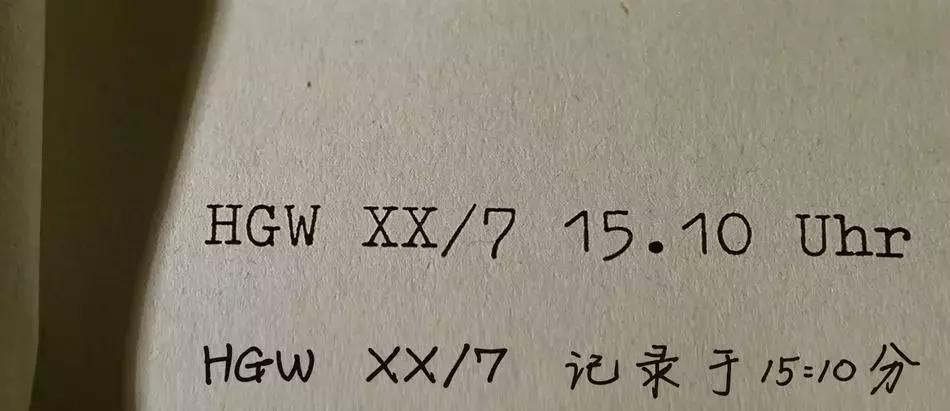 HGW XX/7 15.10 Uhr
HGW XX/7 记录于15:10分